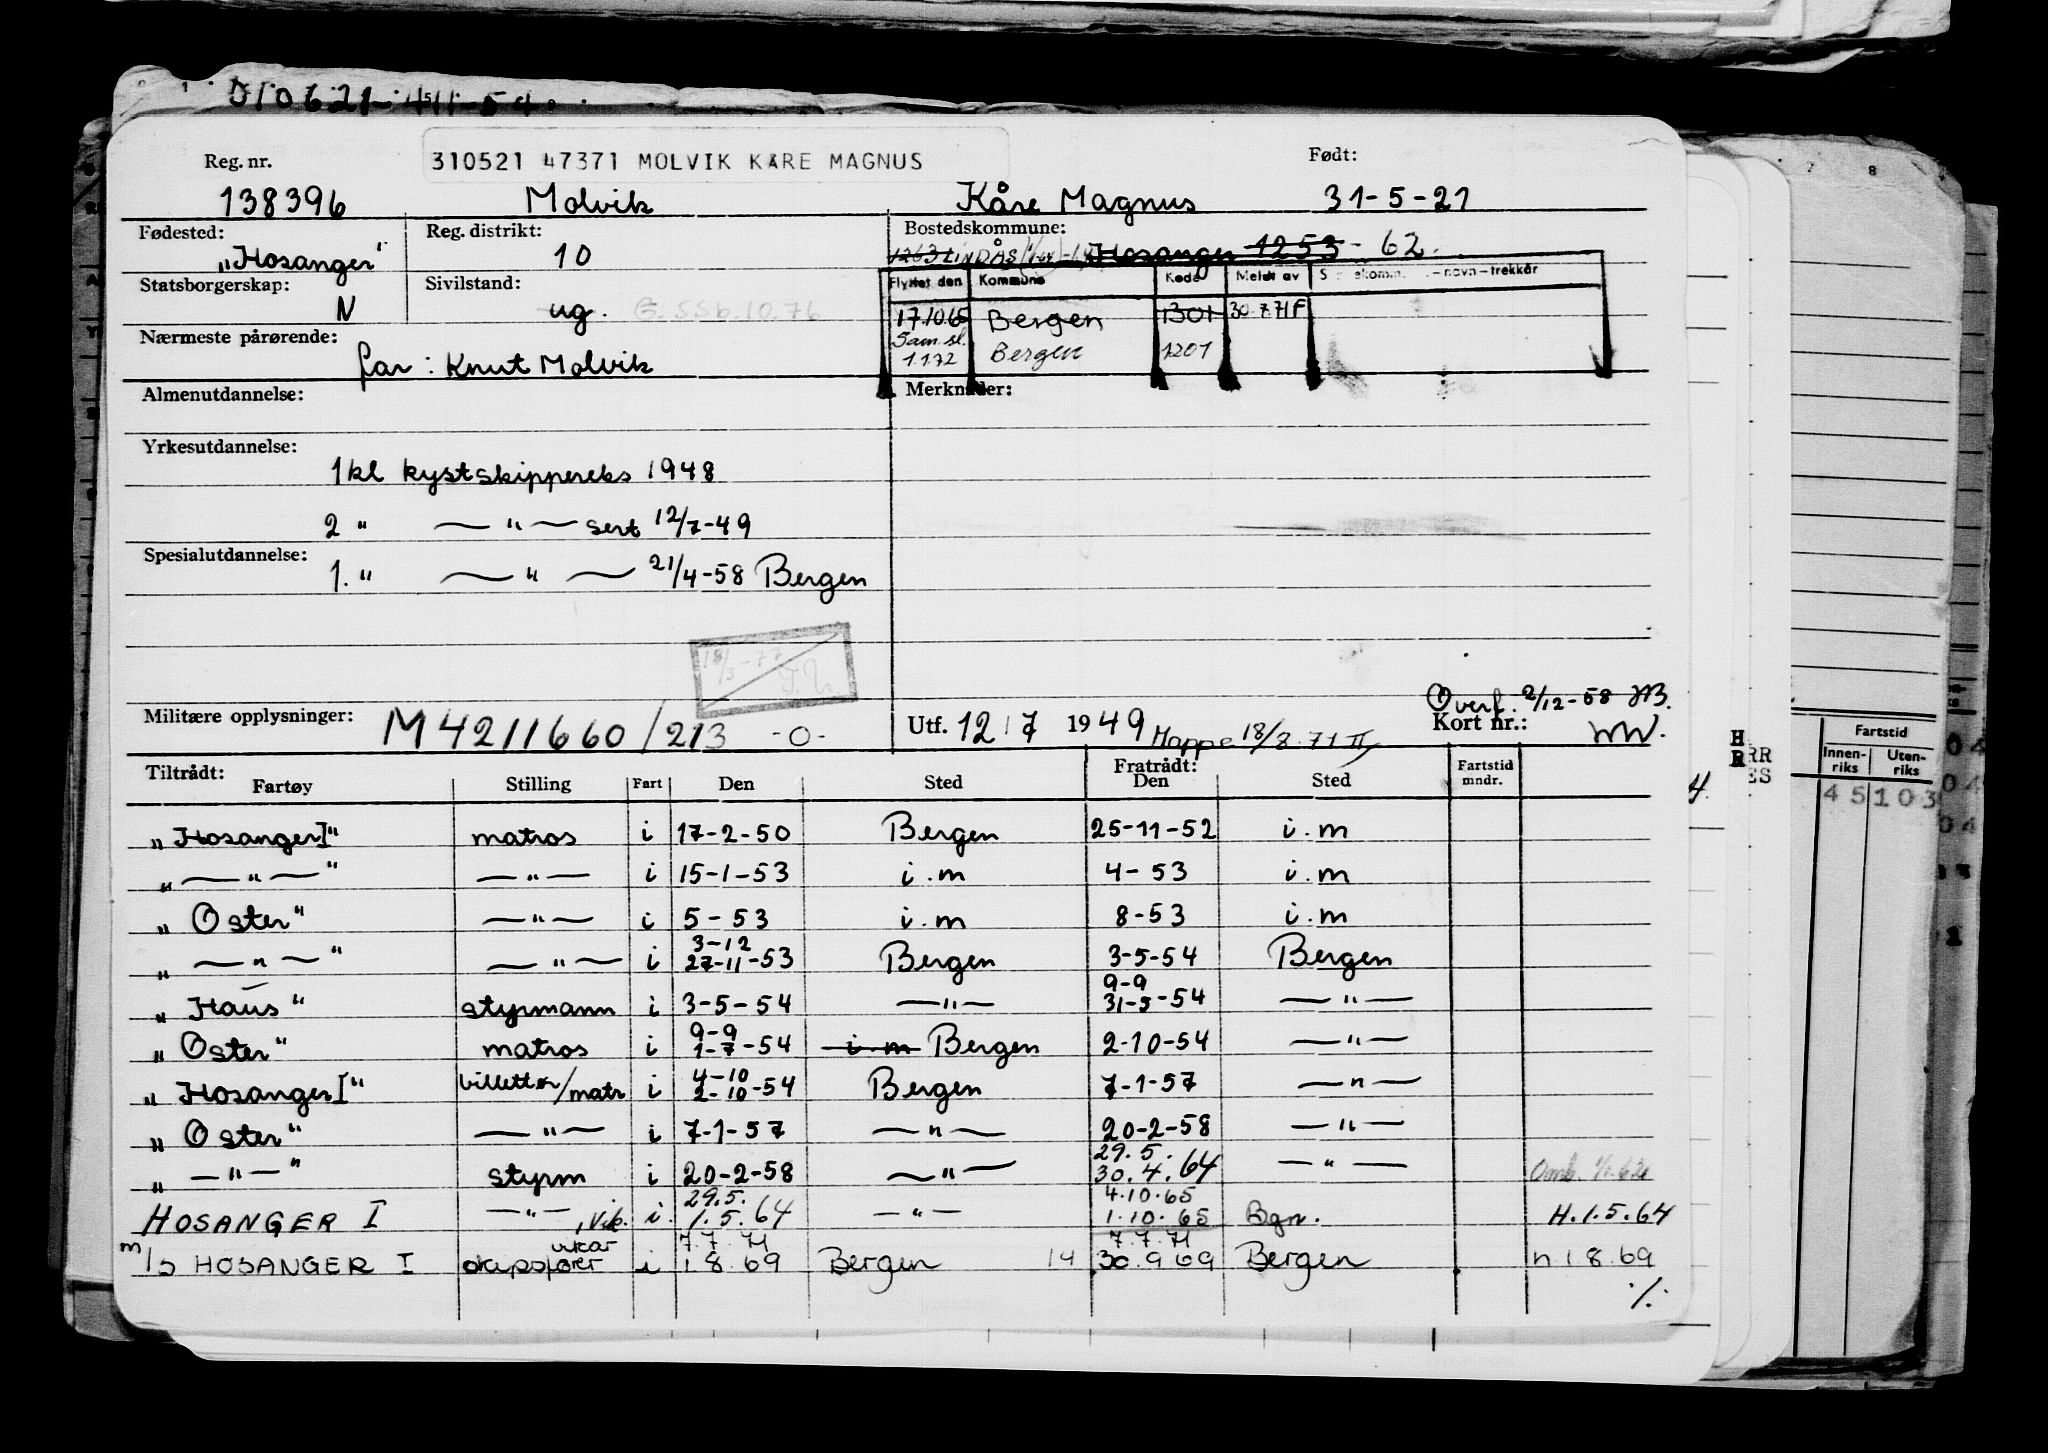 010621-411-54
Reg. nr. 310521 47371 MOLVIK KARE MAGNUS Født:
138396 Molvik Kåre Magnus 31-5-21
Fødested: Reg. distrikt: Bostedskommune:
"Hosanger" 10 1263 LINDÅS Hosanger 1253 - 62.
Statsborgerskap: Sivilstand: Flyttet den Kommune Kode Meldt av - navn - trekkår
N ug. G. SSb. 10.76 17.10.65 Bergen 1301 30 7 71 F
Nærmeste pårørende: Sam. sl.
far: Knut Molvik 1.1.72 Bergen 1201
Almenutdannelse: Merknader:
Yrkesutdannelse:
1 kl kystskippereks 1948
2 " — " — sert 12/7-49
Spesialutdannelse:
1. " — " — 21/4-58 Bergen
18/3-77
Overf. 2/12-58
Militære opplysninger: M4211660/213 -0- Utf. 12/7 1949 Mappe 18/8.71 Kort nr.:
Tiltrådt: Fratrådt:
Fartøy Stilling Fart Den Sted Den Sted Fartstid mndr.
"Hosanger I" matros i 17-2-50 Bergen 25-11-52 i.m
" — " — " — " — i 15-1-53 i.m 4-53 i.m
"Oster" — " — i 5-53 i.m 8-53 i.m
3-12
" — " — " — " — i 27-11-53 Bergen 3-5-54 Bergen
9-9
"Haus" styrmann i 3-5-54 — " — 31-5-54 — " —
9-9
"Oster" matros i 1-7-54 i m Bergen 2-10-54 — " —
4-10
"Hosanger I" billettør/matr i 2-10-54 Bergen 7-1-57 — " —
"Oster" — " — i 7-1-57 — " — 20-2-58 — " —
29.5.
" — " — " styrm i 20-2-58 — " — 30.4.64 — " — Omb. 1/1.62
29.5. 4.10.65
HOSANGER I — " — , vik. i. 1.5.64 — " — 1.10.65 Bgn. H.1.5.64
vikar 7.7.71 7.7.71
m/s HOSANGER I skipsfører i 1 8.69 Bergen 14 30.9 69 Bergen h 1 8.69
./.
Fartstid
Innenriks Utenriks
45 103